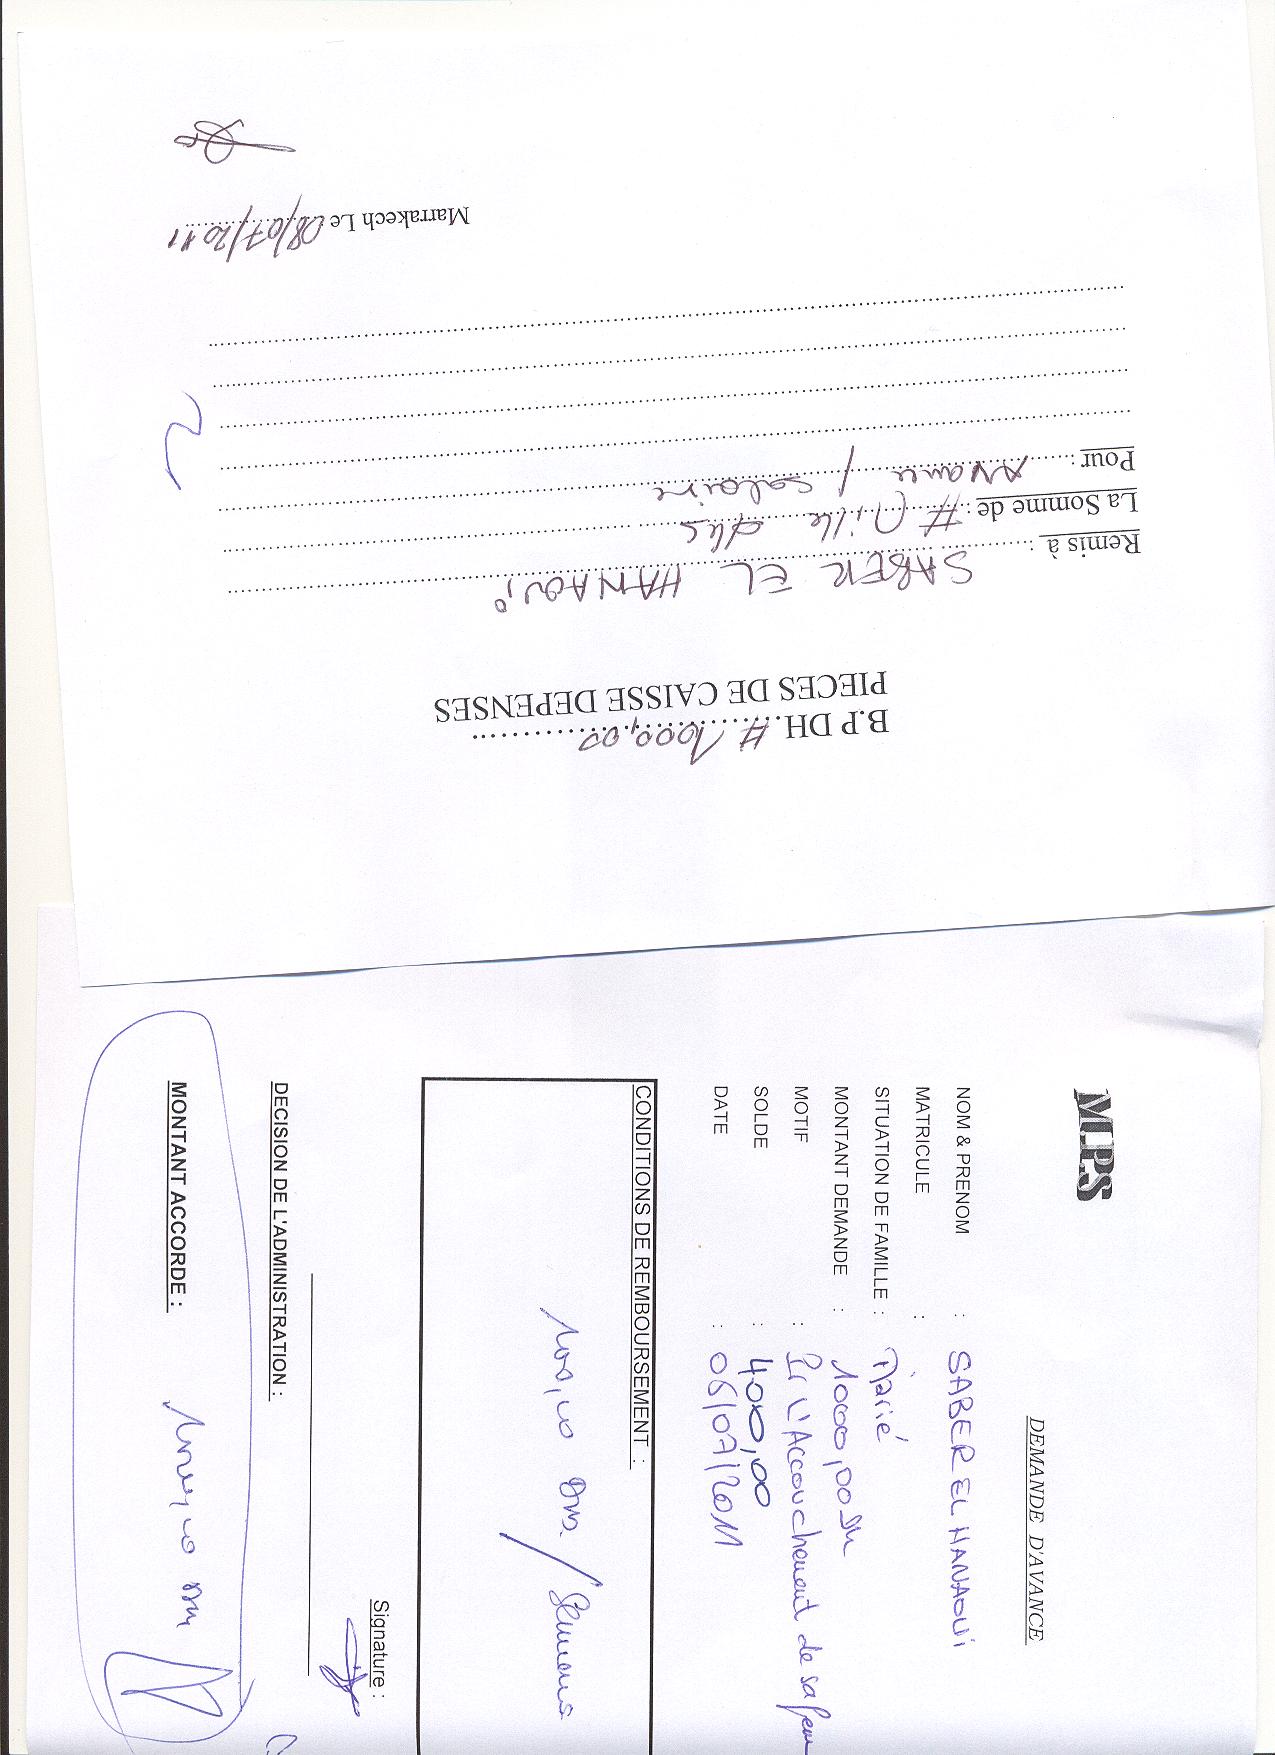 B.P DH. # 1000,00
PIECES DE CAISSE DEPENSES
Remis à : SABER EL HANAOUi
La Somme de : # Mille dhs
Pour : Avance / salaire
Marrakech Le 08/07/2011
MIPS
DEMANDE D'AVANCE
NOM & PRENOM : SABER EL HANAOUi
MATRICULE :
SITUATION DE FAMILLE : Marié
MONTANT DEMANDE : 1000,00 Dh
MOTIF : Pr L'Accouchement de sa fem
SOLDE : 400,00
DATE : 06/07/2011
CONDITIONS DE REMBOURSEMENT :
100,00 Dhs / Semaine
Signature :
DECISION DE L'ADMINISTRATION :
MONTANT ACCORDE :